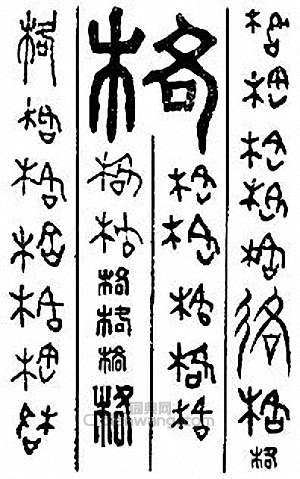 格
格格格格格格格
格格格格格
格格格格格格
格格格格格格
词典网